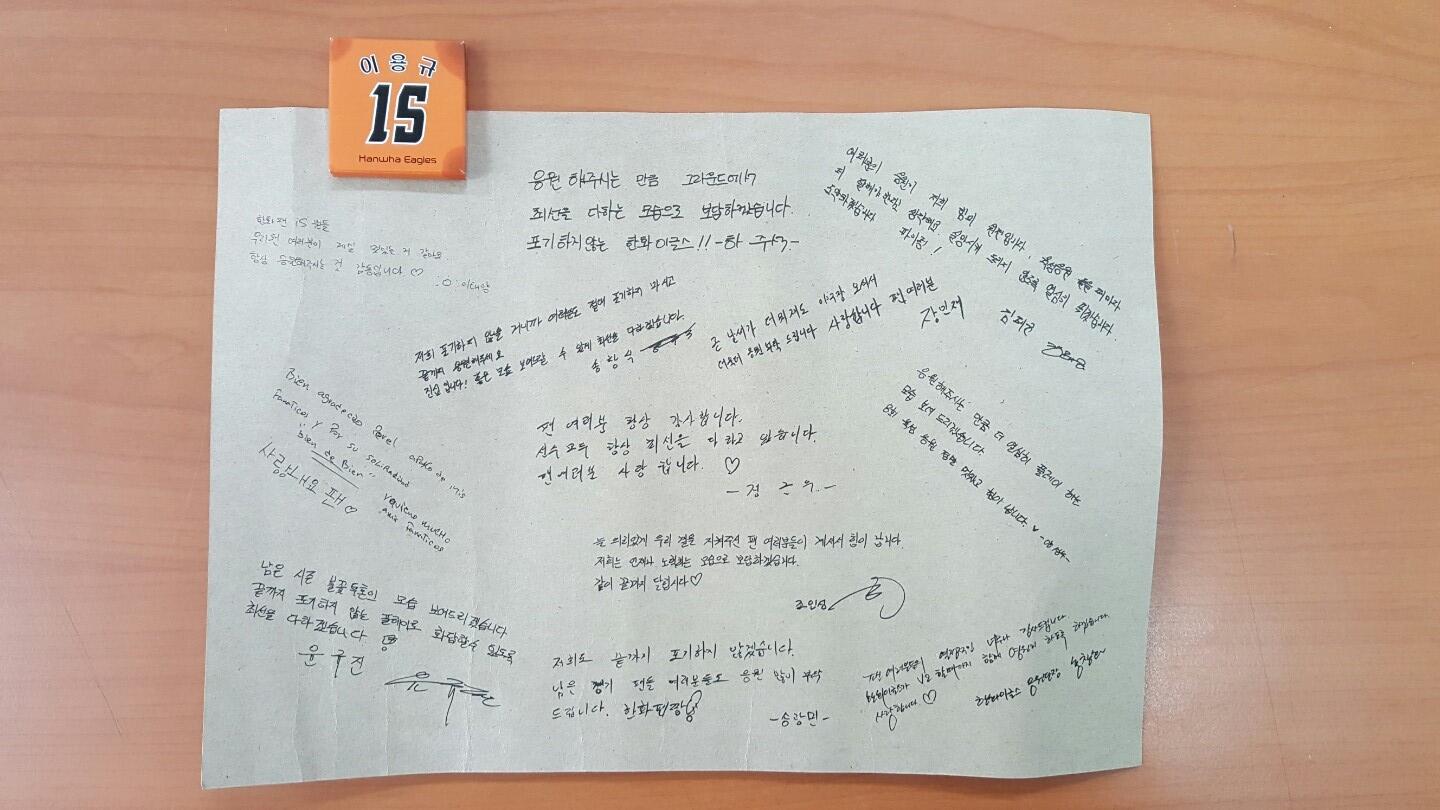 이용규
15
Hanwha Eagles
응원 해주시는 만큼 그라운드에서
최선을 다하는 모습으로 보답하겠습니다.
포기하지않는 한화이글스!! -하 주석-
여러분의 응원이 저희 힘의 원천입니다.
파이팅!
한화팬 is 뭔들
우리팀 여러분이 제일 멋있는 거 같아요
항상 응원해주시는 건 감동입니다 ♡
이태양
저희 포기하지 않을 거니까 여러분도 절대 포기하지 마시고
끝까지 응원해주세요
진심입니다! 좋은 모습 보여드릴 수 있게 최선을 다하겠습니다.
송창식
날씨가 더워져도 야구장 오셔서
더욱더 응원 부탁 드립니다 사랑합니다 팬 여러분
장민재
Bien agradecido
Fanaticos y Por su solidaridad
"bien de Bien"
사랑해요 팬 ♡
팬 여러분 항상 감사합니다.
선수 모두 항상 최선을 다 하고 있습니다.
팬여러분 사랑 합니다. ♡
- 정 근 우. -
응원해주시는 만큼 더 열심히 플레이 하는
모습 보여 드리겠습니다
8회 육성 응원 정말 멋있고 힘이 납니다.
늘 의리있게 우리 곁을 지켜주신 팬 여러분들이 계셔서 힘이 납니다.
저희는 언제나 노력하는 모습으로 보답하겠습니다.
같이 끝까지 달립시다 ♡
조인성
남은 시즌 불꽃투혼의 모습 보여드리겠습니다
끝까지 포기하지 않는 플레이로 화답할수 있도록
최선을 다하겠습니다
윤규진
저희도 끝까지 포기하지 않겠습니다.
남은 경기 팬들 여러분들도 응원 많이 부탁
드립니다. 한화팬짱
-송광민-
팬 여러분들의 열정적인 너무나 감사드립니다
사랑합니다 ♡
한화이글스 응원단장 홍창화